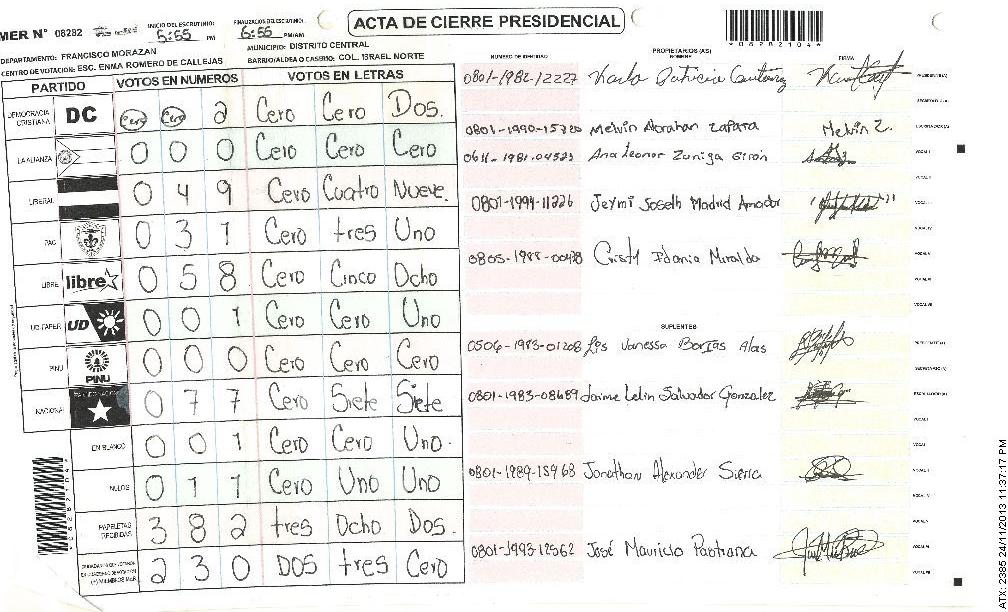 ACTA DE CIERRE PRESIDENCIAL
MER N° 08282
INICIO DEL ESCRUTINIO: 5:55 PM
FINALIZACION DEL ESCRUTINIO: 6:55 PM/AM
*08282104*
DEPARTAMENTO: FRANCISCO MORAZAN
MUNICIPIO: DISTRITO CENTRAL
CENTRO DE VOTACION: ESC. ENMA ROMERO DE CALLEJAS
BARRIO/ALDEA O CASERIO: COL. ISRAEL NORTE
PARTIDO VOTOS EN NUMEROS VOTOS EN LETRAS
DEMOCRACIA CRISTIANA DC Cero Cero 2 Cero Cero Dos.
LA ALIANZA 0 0 0 Cero Cero Cero
LIBERAL 0 4 9 Cero Cuatro Nueve.
PAC 0 3 1 Cero tres Uno
LIBRE libre 0 5 8 Cero Cinco Ocho
UD-FAPER UD 0 0 1 Cero Cero Uno
PINU PINU 0 0 0 Cero Cero Cero
NACIONAL 0 7 7 Cero Siete Siete
EN BLANCO 0 0 1 Cero Cero Uno.
NULOS 0 1 1 Cero Uno Uno
PAPELETAS RECIBIDAS 3 8 2 tres Ocho Dos.
(+) MIEMBROS MER 2 3 0 DOS tres Cero
NUMERO DE IDENTIDAD PROPIETARIOS (AS) NOMBRE FIRMA
0801-1982-12227 Karla Patricia PRESIDENTE (A)
SECRETARIO (A)
0801-1990-15720 Melvin Abrahan Zapata Melvin Z. ESCRUTADOR (A)
0611-1981-04523 Ana Leonor Zuniga Giron VOCAL I
VOCAL II
0801-1994-11226 Jeymi Joseth Madrid Amador VOCAL III
VOCAL IV
0805-1988-00478 Cristy Idania Miralda VOCAL V
VOCAL VI
VOCAL VII
SUPLENTES
0506-1983-01208 Vanessa Borjas Alas PRESIDENTE (A)
SECRETARIO (A)
0801-1983-08689 Jaime Lelin Salvador Gonzalez ESCRUTADOR (A)
VOCAL I
VOCAL II
0801-1989-15968 Jonathan Alexander Sierra VOCAL III
VOCAL IV
VOCAL V
0801-1993-12562 José Mauricio Pastrana VOCAL VI
VOCAL VII
ATX: 2385 24/11/2013 11:37:17 PM